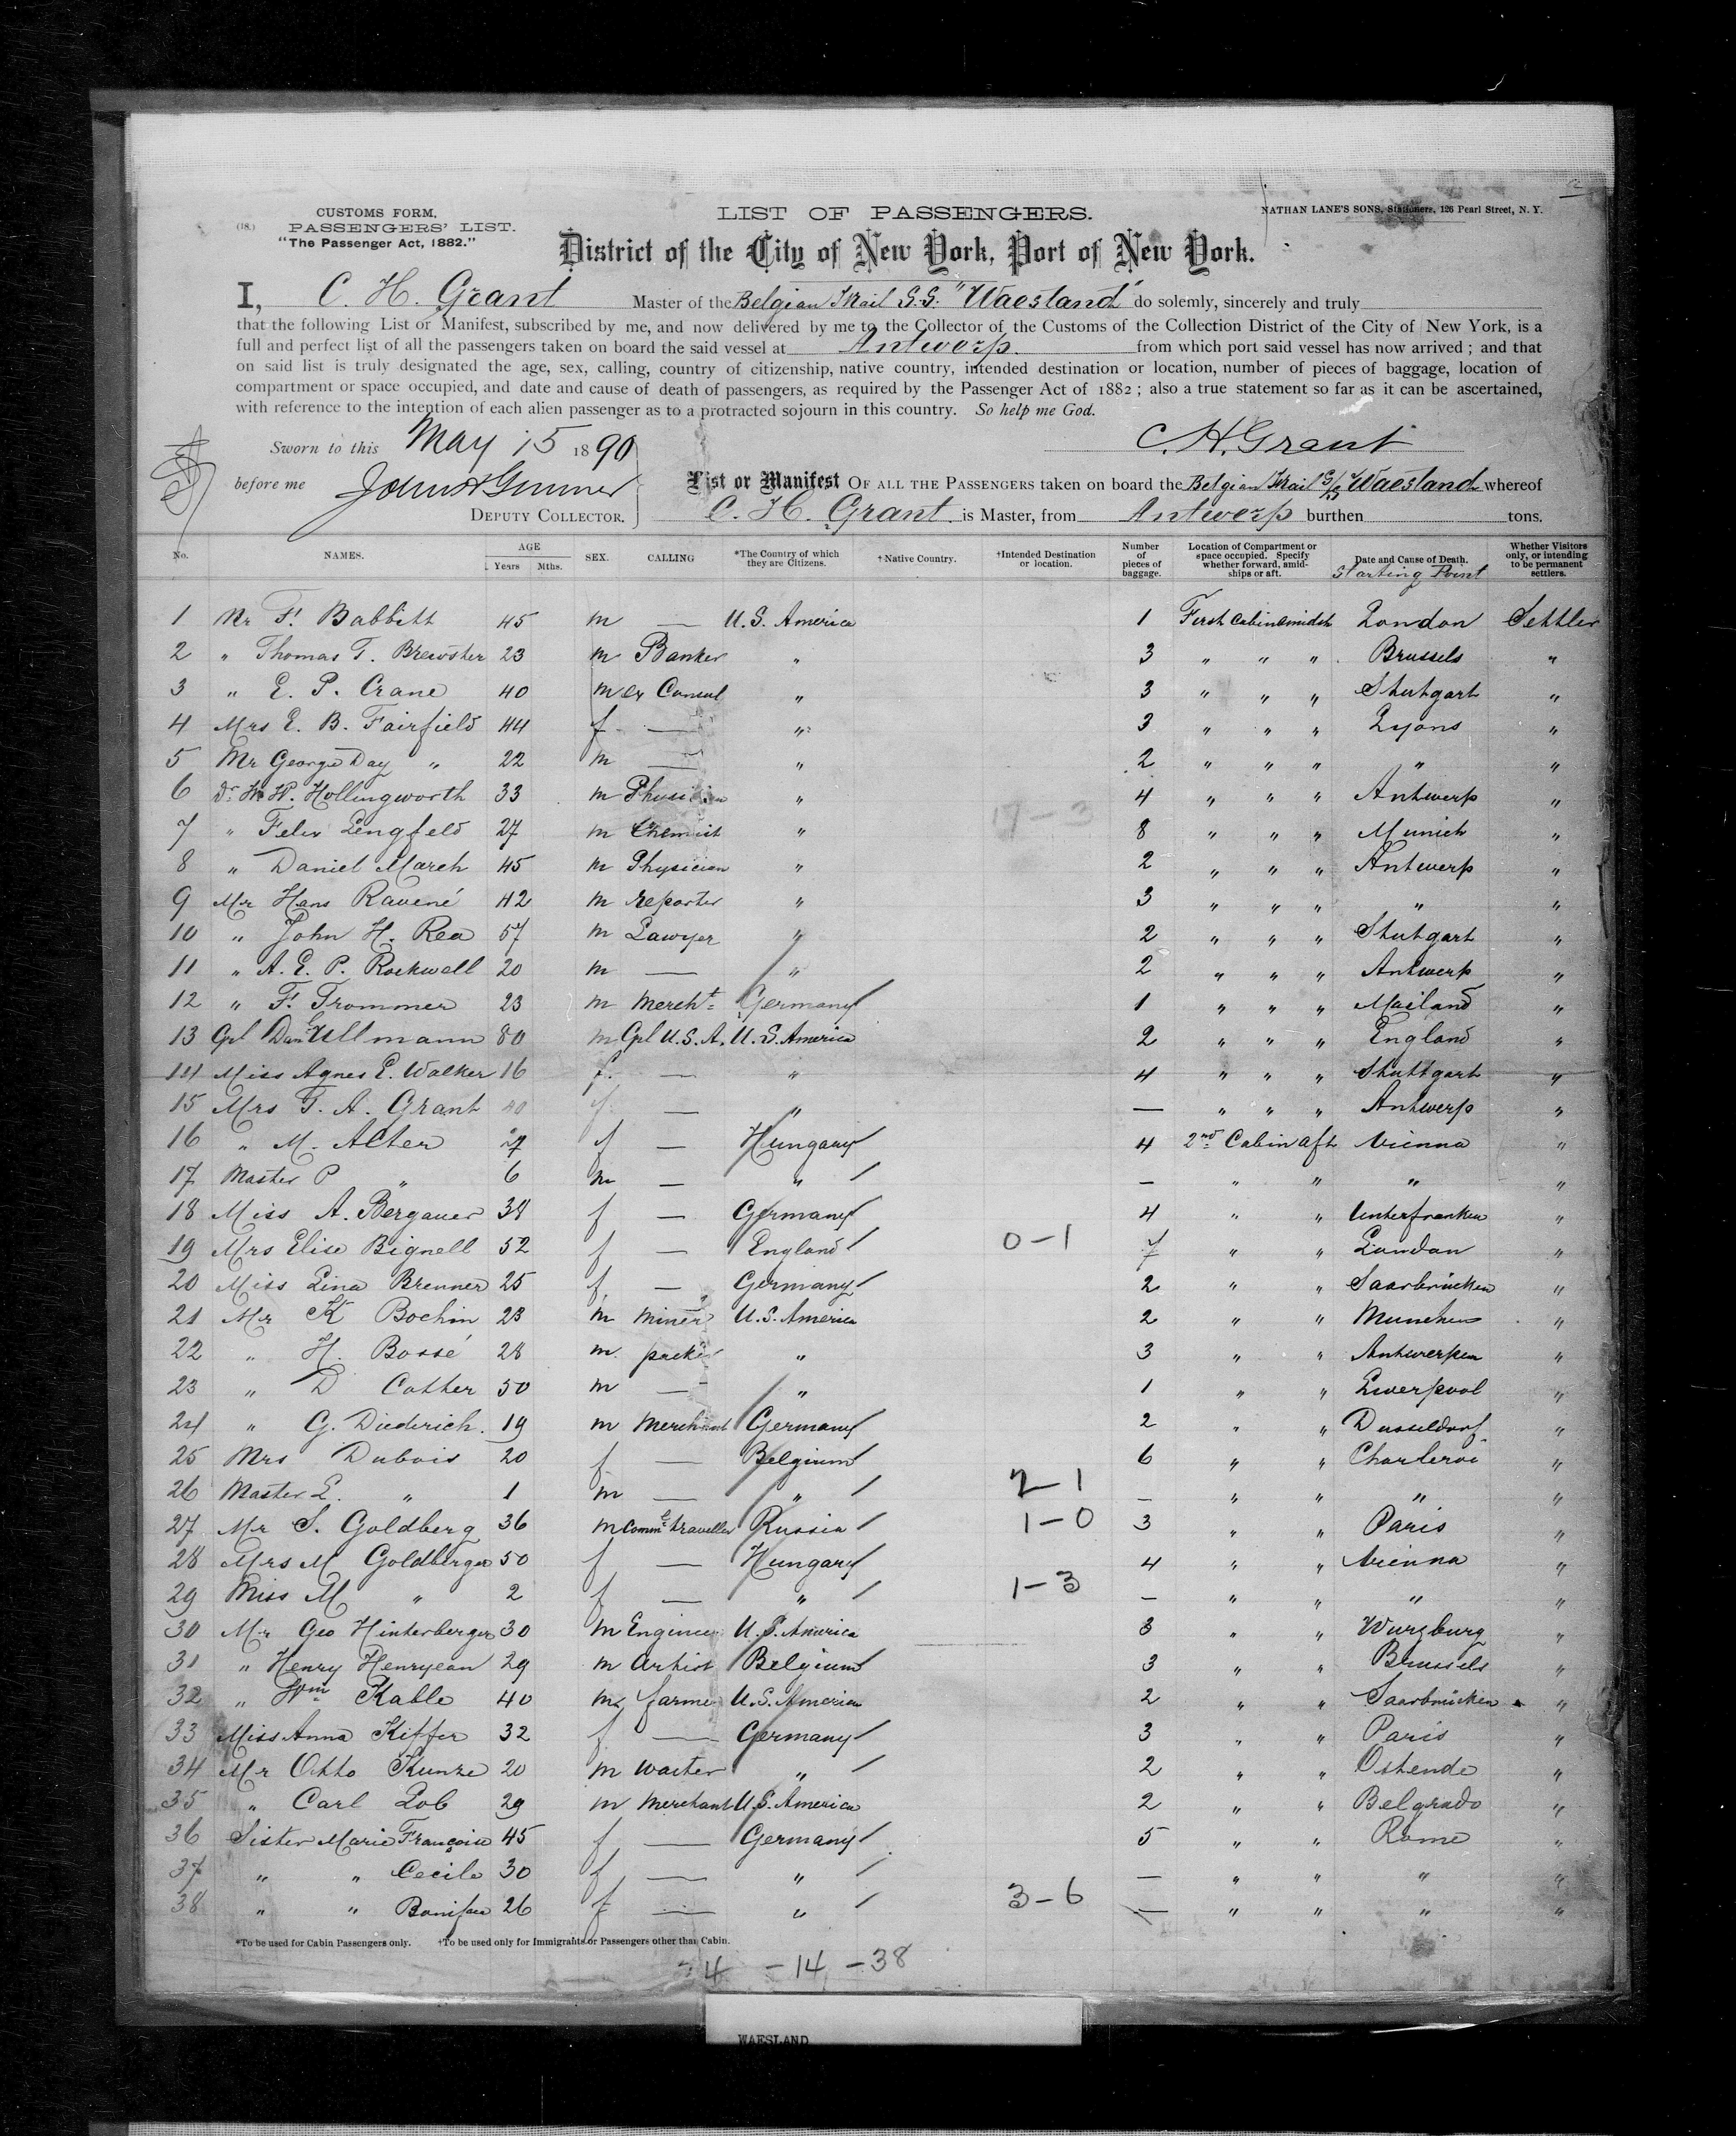 (18.)
CUSTOMS FORM,
PASSENGERS' LIST.
"The Passenger Act, 1882."
LIST OF PASSENGERS.
NATHAN LANE'S SONS, Stationers, 126 Pearl Street, N. Y.
District of the City of New York, Port of New York.
I, C. H. Grant Master of the Belgian Mail S.S. "Waesland" do solemnly, sincerely and truly
that the following List or Manifest, subscribed by me, and now delivered by me to the Collector of the Customs of the Collection District of the City of New York, is a
full and perfect list of all the passengers taken on board the said vessel at Antwerp. from which port said vessel has now arrived ; and that
on said list is truly designated the age, sex, calling, country of citizenship, native country, intended destination or location, number of pieces of baggage, location of
compartment or space occupied, and date and cause of death of passengers, as required by the Passenger Act of 1882 ; also a true statement so far as it can be ascertained,
with reference to the intention of each alien passenger as to a protracted sojourn in this country. So help me God.
Sworn to this May 15 1890
C. H. Grant
before me
DEPUTY COLLECTOR.
List or Manifest OF ALL THE PASSENGERS taken on board the Belgian Mail S/S "Waesland whereof
C. H. Grant is Master, from Antwerp burthen tons.
No. NAMES. AGE Years Mths. SEX. CALLING *The Country of which they are Citizens. †Native Country. †Intended Destination or location. Number of pieces of baggage. Location of Compartment or space occupied. Specify whether forward, amidships or aft. Date and Cause of Death. Starting Point Whether Visitors only, or intending to be permanent settlers.
1 Mr F. Babbitt 45 m — U.S. America 1 First Cabin amidsh London Settler
2 " Thomas T. Brewster 23 m Banker " 3 " " " Brussels "
3 " E. P. Crane 40 m ex Consul " 3 " " " Stutgart "
4 Mrs E. B. Fairfield 44 f — " 3 " " " Lyons "
5 Mr George Day " 22 m — " 2 " " " " "
6 Dr W. Hollingworth 33 m Physician " 4 " " " Antwerp "
7 " Felix Lengfeld 27 m Chemist " 17-3 8 " " " Munich "
8 " Daniel March 45 m Physician " 2 " " " Antwerp "
9 Mr Hans Ravené 42 m reporter " 3 " " " " "
10 " John H. Rea 57 m Lawyer " 2 " " " Stutgart "
11 " A. E. P. Rockwell 20 m — " 2 " " " Antwerp "
12 " F. Trommer 23 m Mercht Germany 1 " " " Mailand "
13 Gnl Danl Ullmann 80 m Gnl U.S.A. U.S. America 2 " " " England "
14 Miss Agnes E. Walker 16 f. — " 4 " " " Stuttgart "
15 Mrs T. A. Grant 40 f. — " — " " " Antwerp "
16 " M. Alter f — Hungary 4 2nd Cabin aft Vienna "
17 Master P " 6 m — " — " " " "
18 Miss A. Bergauer 38 f — Germany 4 " " Unterfranken "
19 Mrs Elise Bignell 52 f — England 0-1 7 " " London "
20 Miss Lina Brenner 25 f. — Germany 2 " " Saarbrücken "
21 Mr K Bochin 23 m miner U.S. America 2 " " Munchen "
22 " H. Bossé 28 m. packer " 3 " " Antwerpen "
23 " D Cotter 50 m — " 1 " " Liverpool "
24 " G. Diederich. 19 m Merchant Germany 2 " " Dusseldorf "
25 Mrs Dubois 20 f — Belgium 6 " " Charleroi "
26 Master E. " 1 m — " 2-1 — " " " "
27 Mr S. Goldberg 36 m comml traveller Russia 1-0 3 " " Paris "
28 Mrs M Goldberger 50 f — Hungary 4 " " Vienna "
29 Miss M " 2 f — " 1-3 — " " " "
30 Mr Geo Hinterberger 30 m Engineer U.S. America 3 " " Wurzburg "
31 " Henry Henryean 29 m artist Belgium 3 " " Brussels "
32 " Wm Kable 40 m farmer U.S. America 2 " " Saarbrücken "
33 Miss Anna Kiffer 32 f — Germany 3 " " Paris "
34 Mr Otto Kunze 20 m waiter " 2 " " Ostende "
35 " Carl Lob 29 m merchant U.S. America 2 " " Belgrado "
36 Sister Marie Françoise 45 f — Germany 5 " " Rome "
37 " " Cecile 30 f — " — " " " "
38 " " Boniface 26 f — " 3-6 — " " " "
*To be used for Cabin Passengers only. †To be used only for Immigrants or Passengers other than Cabin.
24 - 14 - 38
WAESLAND